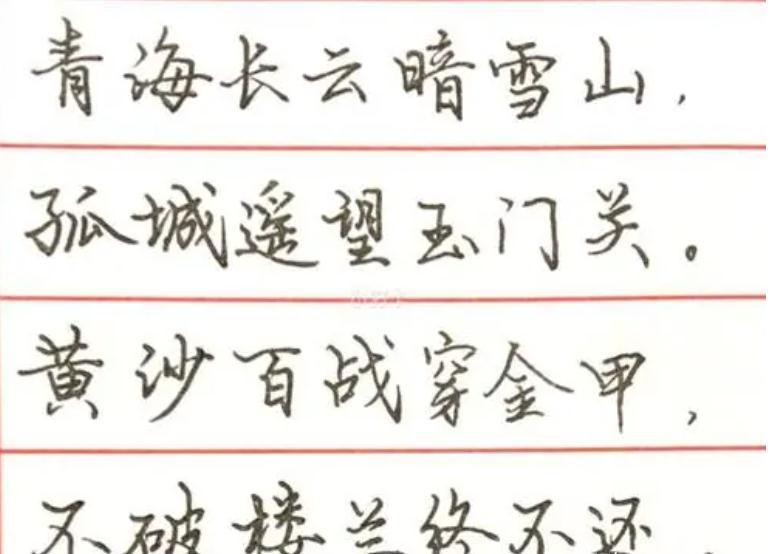 青海长云暗雪山，
孤城遥望玉门关。
黄沙百战穿金甲，
不破楼兰终不还